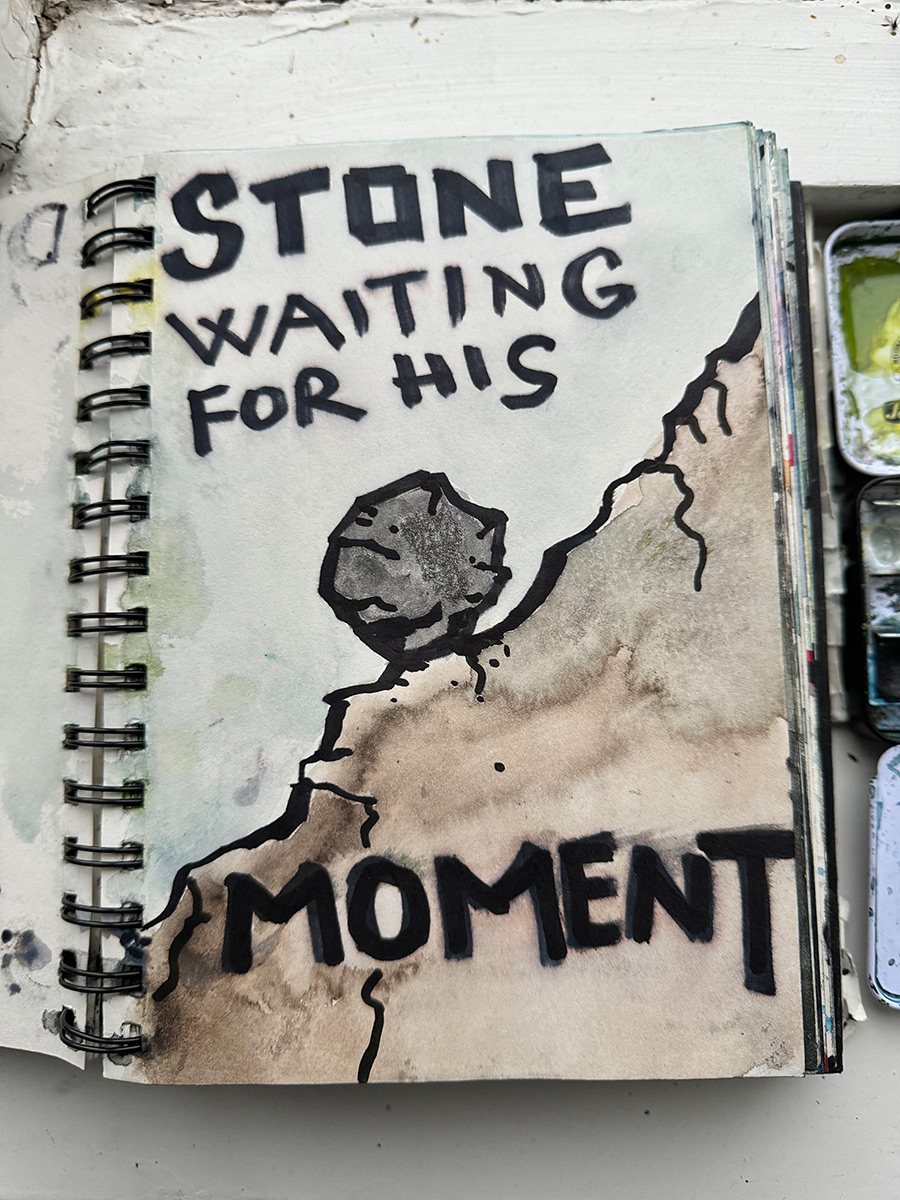 STONE
WAITING
FOR HIS
MOMENT